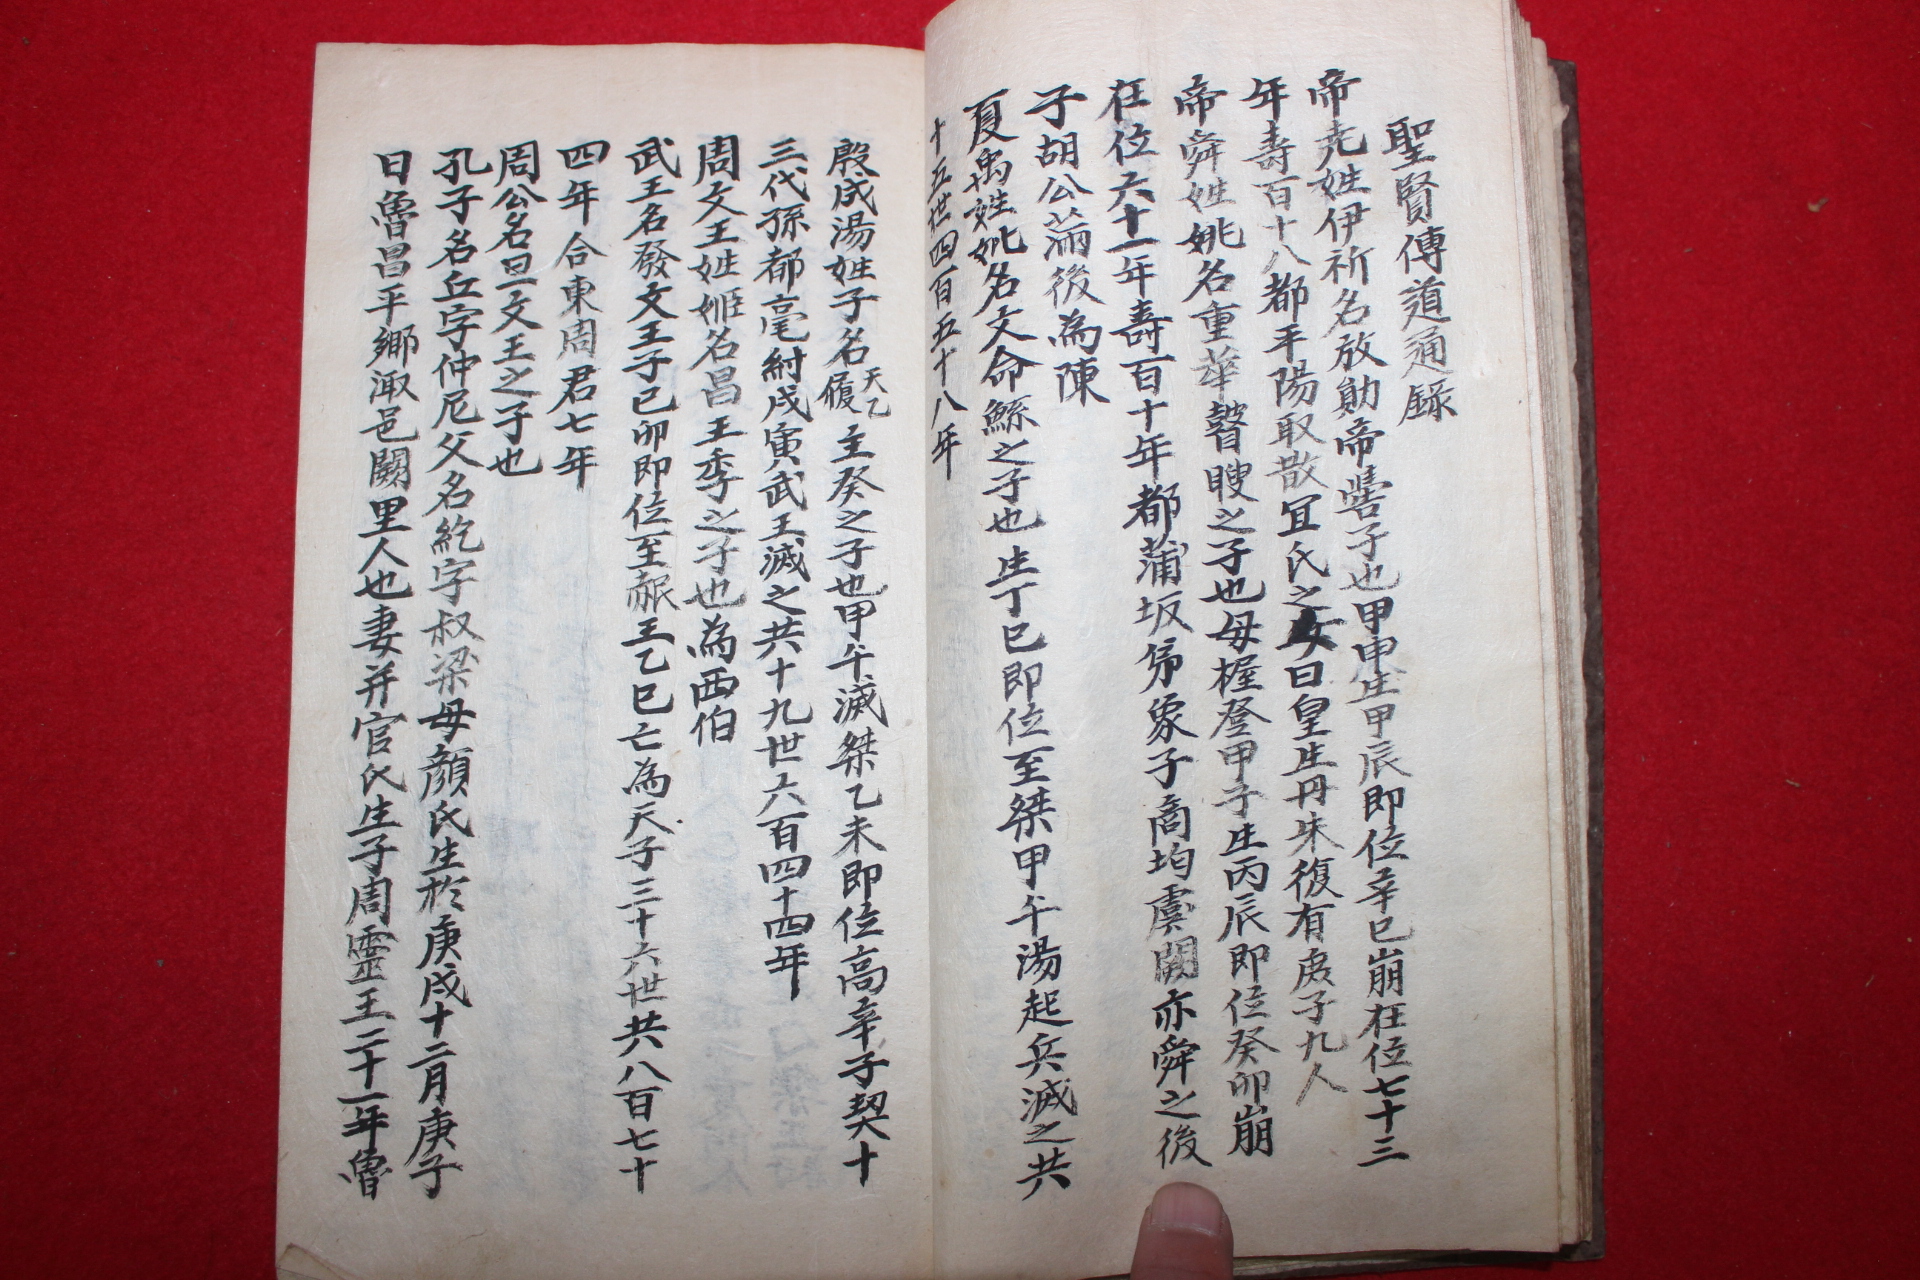 聖賢傳道通錄
帝尭姓伊祈名放勛帝嚳子也甲申生甲辰即位辛巳崩在位七十三
年壽百十八都平陽取散宜氏之女曰皇生丹朱復有庶子九人
帝舜姓姚名重華瞽瞍之子也母握登甲子生丙辰即位癸卯崩
在位六十一年壽百十年都蒲坂弟象子商均虞闕亦舜之後
子胡公滿後為陳
夏禹姓姚名文命鯀之子也生丁巳即位至桀甲午湯起兵滅之共
十五世四百五十八年
殷成湯姓子名天乙履主癸之子也甲午滅桀乙未即位高辛子契十
三代孫都亳紂戊寅武王滅之共十九世六百四十四年
周文王姓姬名昌王季之子也為西伯
武王名發文王子已卯即位至赧王乙巳亡為天子三十六世共八百七十
四年合東周君七年
周公名旦文王之子也
孔子名丘字仲尼父名紇字叔梁母顔氏生於庚戌十二月庚子
日魯昌平鄉陬邑闕里人也妻并官氏生子周靈王二十一年魯